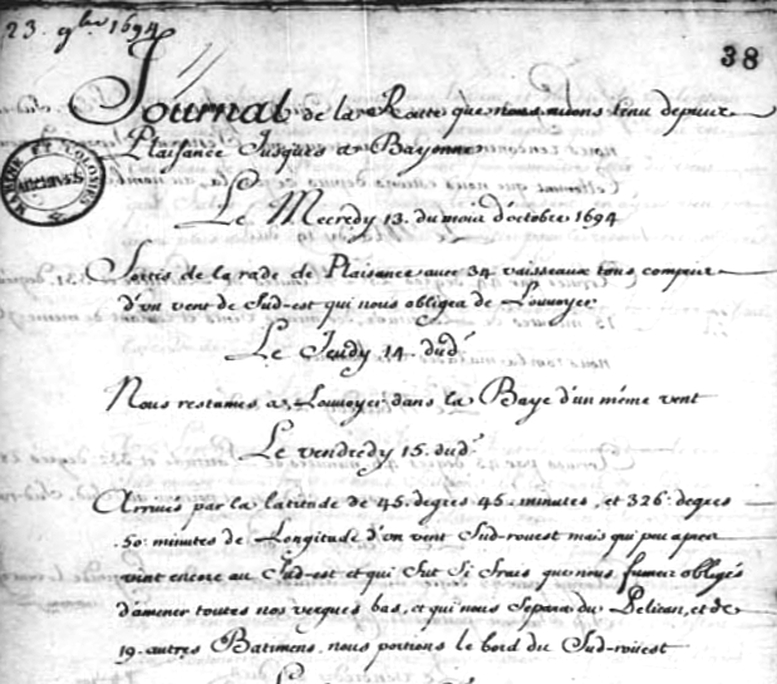 23. 9bre 1694
38
Journal de la Route que nous auons tenu depuis
Plaisance Jusques a Bayonne
MARINE ET COLONIES
ARCHIVES
Le Mecredy 13. du mois d'octobre 1694
Sortis de la rade de Plaisance auec 34 vaisseaux tous compris
d'vn vent de Sud-est qui nous obligea de Louuoyer
Le Jeudy 14. dud.
Nous restames a Louuoyer dans la Baye d'un méme vent
Le vendredy 15. dud.
Arriués par la latitude de 45. degres 45. minutes, et 326. degres
50. minutes de Longitude d'vn vent Sud-rouest mais qui peu apres
vint encore au Sud-est et qui fut si frais que nous fumes obligés
d'amener toutes nos vergues bas, et qui nous separa du Pelican, et de
19. autres Batimens, nous portions le bord du Sud-roüest